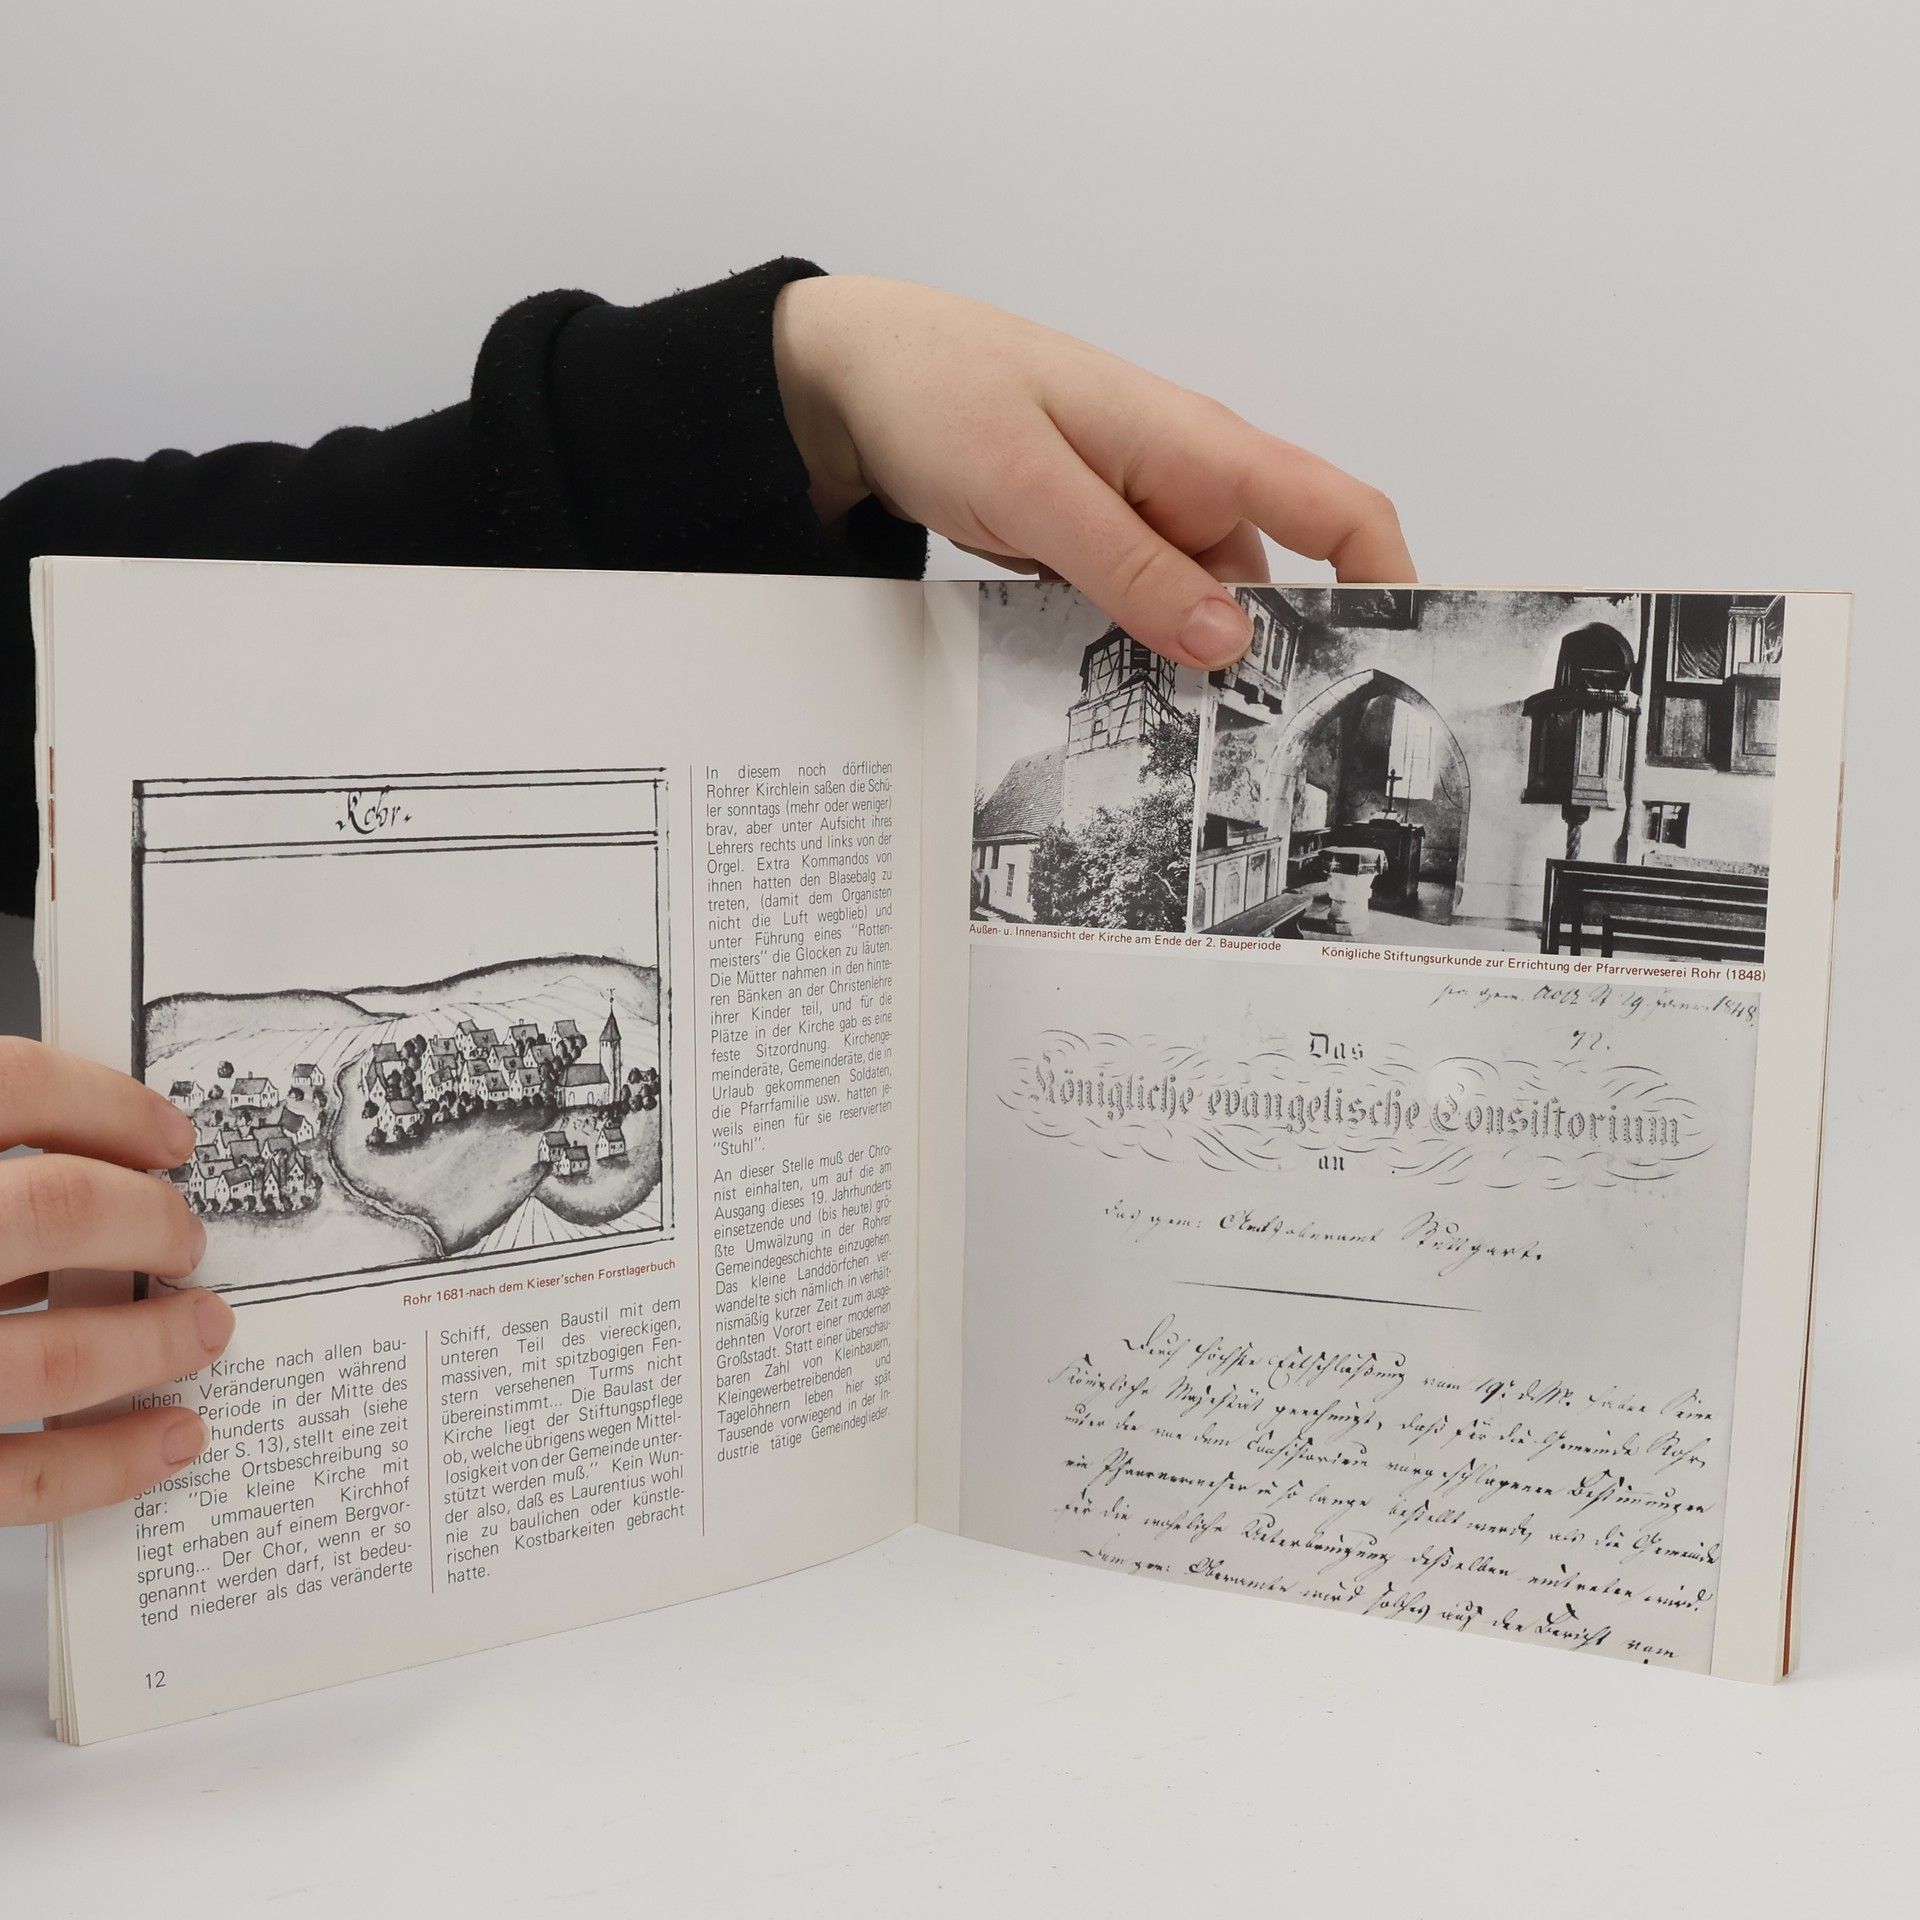 Rohr.
Rohr 1681-nach dem Kieser'schen Forstlagerbuch
Kirche nach allen bau-
lichen Veränderungen während
Periode in der Mitte des
hunderts aussah (siehe
der S. 13), stellt eine zeit
genössische Ortsbeschreibung so
dar: "Die kleine Kirche mit
ihrem ummauerten Kirchhof
liegt erhaben auf einem Bergvor-
sprung... Der Chor, wenn er so
genannt werden darf, ist bedeu-
tend niederer als das veränderte
Schiff, dessen Baustil mit dem
unteren Teil des viereckigen,
massiven, mit spitzbogigen Fen-
stern versehenen Turms nicht
übereinstimmt... Die Baulast der
Kirche liegt der Stiftungspflege
ob, welche übrigens wegen Mittel-
losigkeit von der Gemeinde unter-
stützt werden muß." Kein Wun-
der also, daß es Laurentius wohl
nie zu baulichen oder künstle-
rischen Kostbarkeiten gebracht
hatte.
In diesem noch dörflichen
Rohrer Kirchlein saßen die Schü-
ler sonntags (mehr oder weniger)
brav, aber unter Aufsicht ihres
Lehrers rechts und links von der
Orgel. Extra Kommandos von
ihnen hatten den Blasebalg zu
treten, (damit dem Organisten
nicht die Luft wegblieb) und
unter Führung eines "Rotten-
meisters" die Glocken zu läuten.
Die Mütter nahmen in den hinte-
ren Bänken an der Christenlehre
ihrer Kinder teil, und für die
Plätze in der Kirche gab es eine
feste Sitzordnung. Kirchenge-
meinderäte, Gemeinderäte, die in
Urlaub gekommenen Soldaten,
die Pfarrfamilie usw. hatten je-
weils einen für sie reservierten
"Stuhl".
An dieser Stelle muß der Chro-
nist einhalten, um auf die am
Ausgang dieses 19. Jahrhunderts
einsetzende und (bis heute) grö-
ßte Umwälzung in der Rohrer
Gemeindegeschichte einzugehen.
Das kleine Landdörfchen ver-
wandelte sich nämlich in verhält-
nismäßig kurzer Zeit zum ausge-
dehnten Vorort einer modernen
Großstadt. Statt einer überschau-
baren Zahl von Kleinbauern,
Kleingewerbetreibenden und
Tagelöhnern leben hier spät
Tausende vorwiegend in der In-
dustrie tätige Gemeindeglieder.
12
Außen- u. Innenansicht der Kirche am Ende der 2. Bauperiode
Königliche Stiftungsurkunde zur Errichtung der Pfarrverweserei Rohr (1848)
1848.
72.
Das
Königliche evangelische Consistorium
an
das gem: Amtsoberamt Stuttgart.
Durch höchste Entschließung vom 19. d. M. haben Seine
Königliche Majestät genehmigt, daß für die Gemeinde Rohr,
unter den von dem Consistorium vorgeschlagenen Bestimmungen
ein Pfarrverweser so lange bestellt werde, als die Gemeinde
für die Unterbringung desselben eintreten wird.
Dem gem: Oberamte wird solches auf den Bericht vom